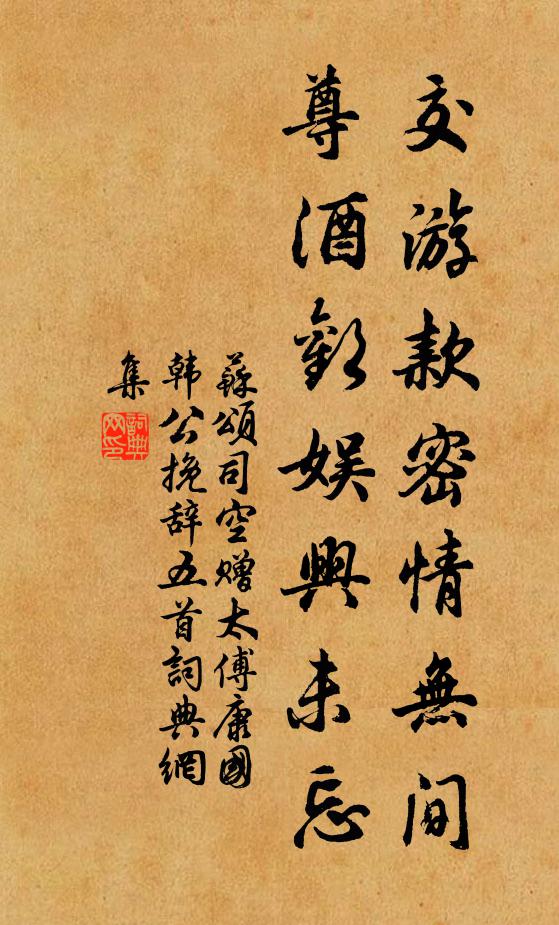 交游款密情無間
尊酒歡娛興未忘
蘇頌司空贈太傅康國
韩公挽辞五首詞典網
集
詞典
网印